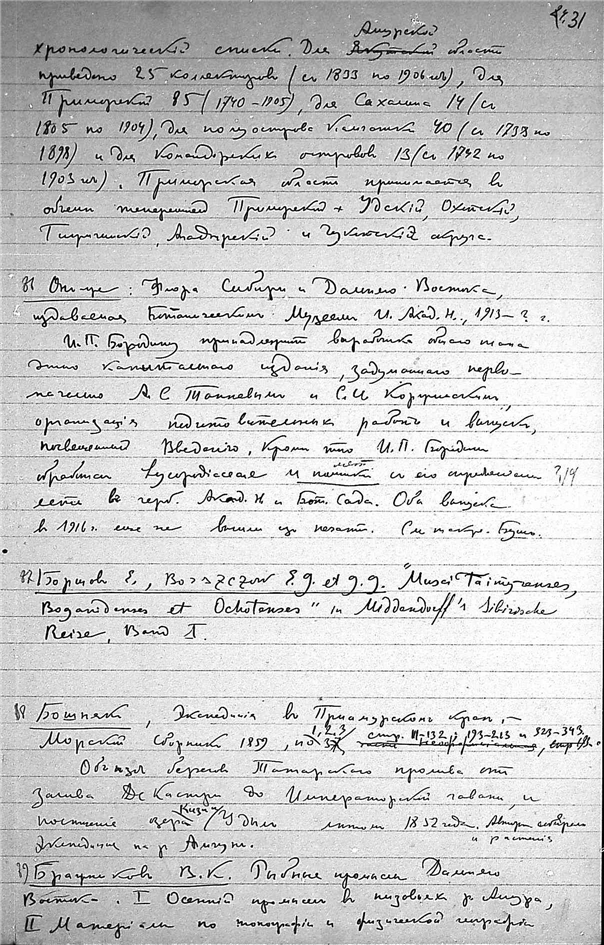 31
Амурской
хронологический список. Для области
приведено 25 коллекторов (съ 1833 по 1906 г.), для
Приморской 85 (1740–1905), для Сахалина 14 (съ
1805 по 1904), для полуострова Камчатки 40 (съ 1738 по
1898) и для Командорских островов 13 (съ 1742 по
1903 г.). Приморская область принимается в
объеме теперешней Приморской + Удский, Охотский,
Гижигинский, Анадырский и Чукотский округа.
Он-же: Флора Сибири и Дальнего Востока,
издаваемая Ботаническим Музеем И. Акад. Н., 1913–? г.
И.П. Бородину принадлежит выработка общего плана
этого капитального издания, задуманного перво-
начально А.С. и С.И. Коржинским,
организация подготовительных работ и выпуск,
посвященный Введению, кроме того И.П. Бородин
обработал Lycopodiaceae и
в герб. Акад. Н и Бот. Сада. Оба выпуска
в 1916 г. еще не вышли из печати. См также
Борщов Е., Borszczow E. g. et g. g. "Musci Taimyrenses,
Boganidenses et Ochotenses" in Middendorff's Sibirische
Reise, Band I.
Бошняк, Экспедиция в Приамурском крае,–
Морской Сборник 1859, 1, 2, 3 стр. III-132, 193-213 и 323-343.
Объезд берегов Татарского пролива от
залива Де Кастри до Императорской гавани, и
посещение озера Кизи и Удыль летом 1852 года. Автор собирал
и растения
Экспедиция на р. Амгунь.
Бражников В.К. Рыбные промыслы Дальнего
Востока. I Осенний промысел в низовьях р Амура,
II Материалы по топографии и физической географии